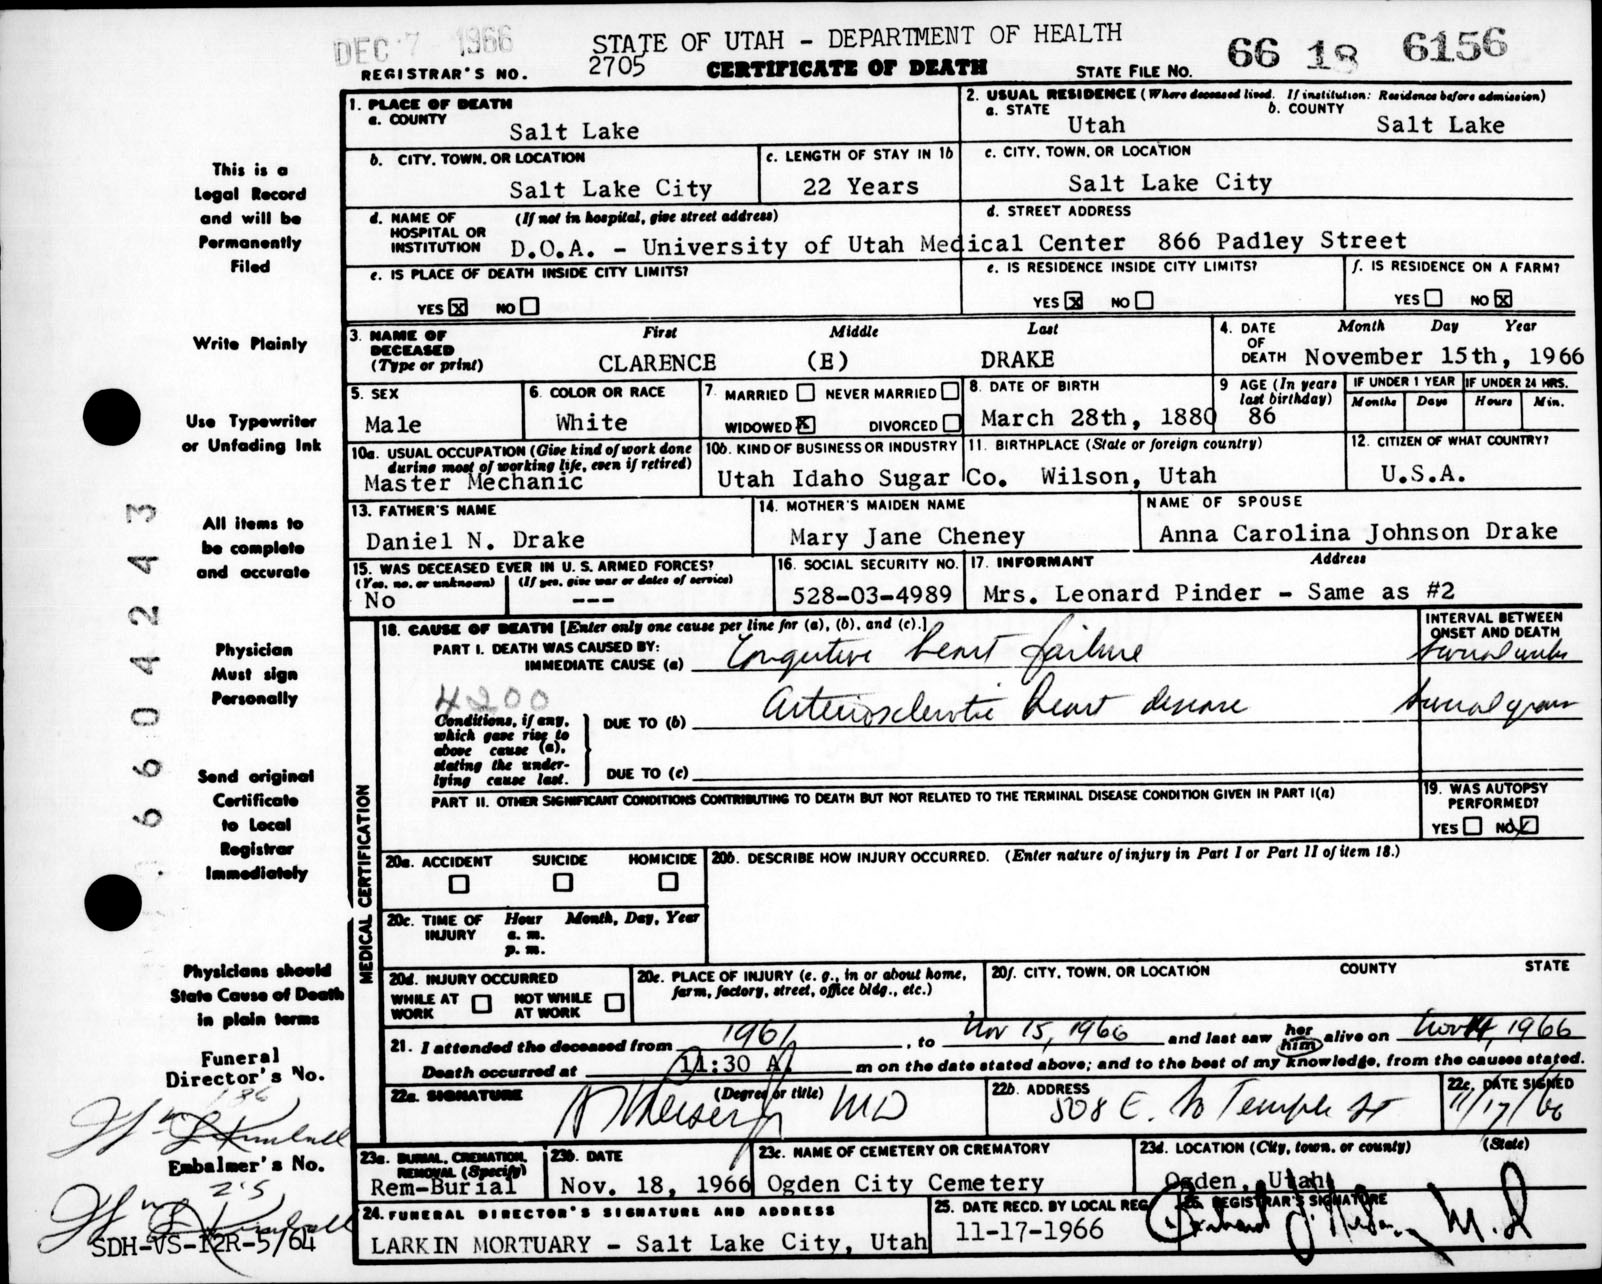 DEC 7 1966
STATE OF UTAH - DEPARTMENT OF HEALTH
REGISTRAR'S NO. 2705 CERTIFICATE OF DEATH STATE FILE NO. 66 18 6156
This is a
Legal Record
and will be
Permanently
Filed
Write Plainly
Use Typewriter
or Unfading Ink
All items to
be complete
and accurate
Physician
Must sign
Personally
Send original
Certificate
to Local
Registrar
Immediately
Physicians should
State Cause of Death
in plain terms
Funeral
Director's No.
186
Embalmer's No.
SDH-VS-12R-5/64
6604243
1. PLACE OF DEATH
a. COUNTY
Salt Lake
2. USUAL RESIDENCE (Where deceased lived. If institution: Residence before admission)
a. STATE b. COUNTY
Utah Salt Lake
b. CITY, TOWN, OR LOCATION c. LENGTH OF STAY IN 1b c. CITY, TOWN, OR LOCATION
Salt Lake City 22 Years Salt Lake City
d. NAME OF HOSPITAL OR INSTITUTION (If not in hospital, give street address) d. STREET ADDRESS
D.O.A. - University of Utah Medical Center 866 Padley Street
e. IS PLACE OF DEATH INSIDE CITY LIMITS? e. IS RESIDENCE INSIDE CITY LIMITS? f. IS RESIDENCE ON A FARM?
YES X NO YES X NO YES NO X
3. NAME OF DECEASED (Type or print) First Middle Last 4. DATE OF DEATH Month Day Year
CLARENCE (E) DRAKE November 15th, 1966
5. SEX 6. COLOR OR RACE 7. MARRIED NEVER MARRIED 8. DATE OF BIRTH 9 AGE (In years last birthday) IF UNDER 1 YEAR IF UNDER 24 HRS.
Months Days Hours Min.
Male White WIDOWED X DIVORCED March 28th, 1880 86
10a. USUAL OCCUPATION (Give kind of work done during most of working life, even if retired) 10b. KIND OF BUSINESS OR INDUSTRY 11. BIRTHPLACE (State or foreign country) 12. CITIZEN OF WHAT COUNTRY?
Master Mechanic Utah Idaho Sugar Co. Wilson, Utah U.S.A.
13. FATHER'S NAME 14. MOTHER'S MAIDEN NAME NAME OF SPOUSE
Daniel N. Drake Mary Jane Cheney Anna Carolina Johnson Drake
15. WAS DECEASED EVER IN U. S. ARMED FORCES? 16. SOCIAL SECURITY NO. 17. INFORMANT Address
(Yes, no, or unknown) (If yes, give war or dates of service)
No --- 528-03-4989 Mrs. Leonard Pinder - Same as #2
18. CAUSE OF DEATH [Enter only one cause per line for (a), (b), and (c).] INTERVAL BETWEEN ONSET AND DEATH
PART I. DEATH WAS CAUSED BY:
IMMEDIATE CAUSE (a) Congestive heart failure several weeks
4200
Conditions, if any, which gave rise to above cause (a), stating the underlying cause last.
DUE TO (b) Arteriosclerotic heart disease several years
DUE TO (c)
PART II. OTHER SIGNIFICANT CONDITIONS CONTRIBUTING TO DEATH BUT NOT RELATED TO THE TERMINAL DISEASE CONDITION GIVEN IN PART I(a)
19. WAS AUTOPSY PERFORMED?
YES NO
MEDICAL CERTIFICATION
20a. ACCIDENT SUICIDE HOMICIDE 20b. DESCRIBE HOW INJURY OCCURRED. (Enter nature of injury in Part I or Part II of item 18.)
20c. TIME OF INJURY Hour Month, Day, Year
a. m.
p. m.
20d. INJURY OCCURRED
WHILE AT WORK NOT WHILE AT WORK
20e. PLACE OF INJURY (e. g., in or about home, farm, factory, street, office bldg., etc.)
20f. CITY, TOWN, OR LOCATION COUNTY STATE
21. I attended the deceased from 1961, to Nov 15, 1966 and last saw her him alive on Nov 14, 1966
Death occurred at 11:30 A. m on the date stated above; and to the best of my knowledge, from the causes stated.
22a. SIGNATURE (Degree or title) MD 22b. ADDRESS 508 E. So Temple St 22c. DATE SIGNED 11/17/66
23a. BURIAL, CREMATION, REMOVAL (Specify) 23b. DATE 23c. NAME OF CEMETERY OR CREMATORY 23d. LOCATION (City, town, or county) (State)
Rem-Burial Nov. 18, 1966 Ogden City Cemetery Ogden, Utah
24. FUNERAL DIRECTOR'S SIGNATURE AND ADDRESS 25. DATE RECD. BY LOCAL REG. 26. REGISTRAR'S SIGNATURE
LARKIN MORTUARY - Salt Lake City, Utah 11-17-1966 M.D.